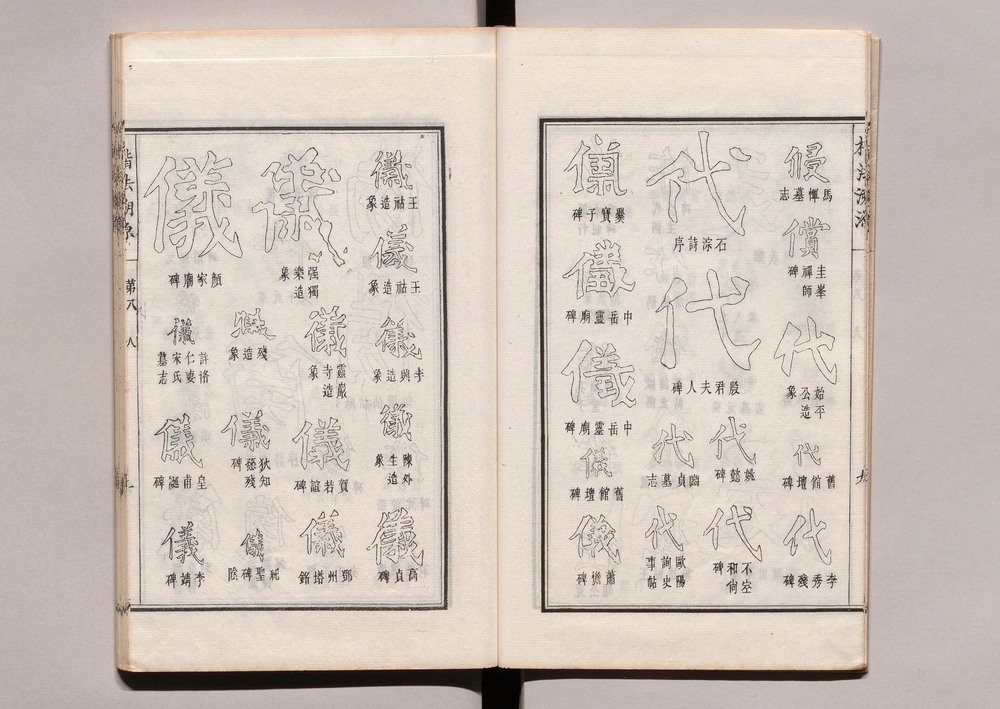 馬惲墓志
償
圭峯禪師碑
代
始平公造象
代
舊館壇碑
代
李秀殘碑
代
石淙詩序
代
殷君夫人碑
代
姚懿碑
代
幽貞墓志
代
不空和尚碑
代
歐陽詢史事帖
儀
爨寶子碑
儀
中岳靈廟碑
儀
中岳靈廟碑
儀
舊館壇碑
儀
蕭憺碑
儀
王祜造象
儀
王祜造象
儀
李興造象
儀
陳外生造象
儀
高貞碑
儀
强獨樂造象
儀
靈巖寺造象
儀
賀若誼碑
儀
鄧州塔銘
儀
殘造象
儀
狄知愻殘碑
儀
紀聖碑陰
儀
顏家廟碑
儀
許洛仁妻宋氏墓志
儀
皇甫誕碑
儀
李靖碑
楷法溯源 第八 八